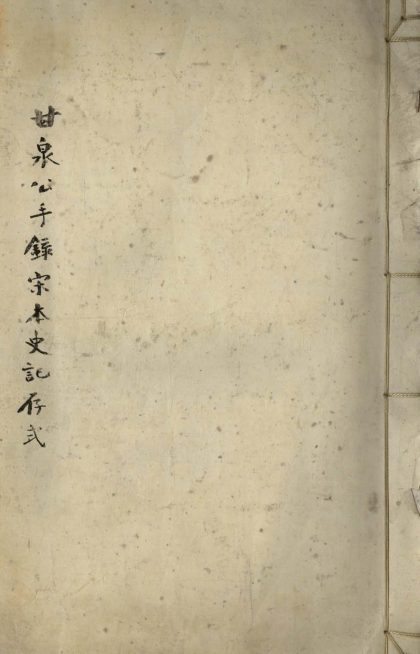 甘泉公手錄宋本史記存式